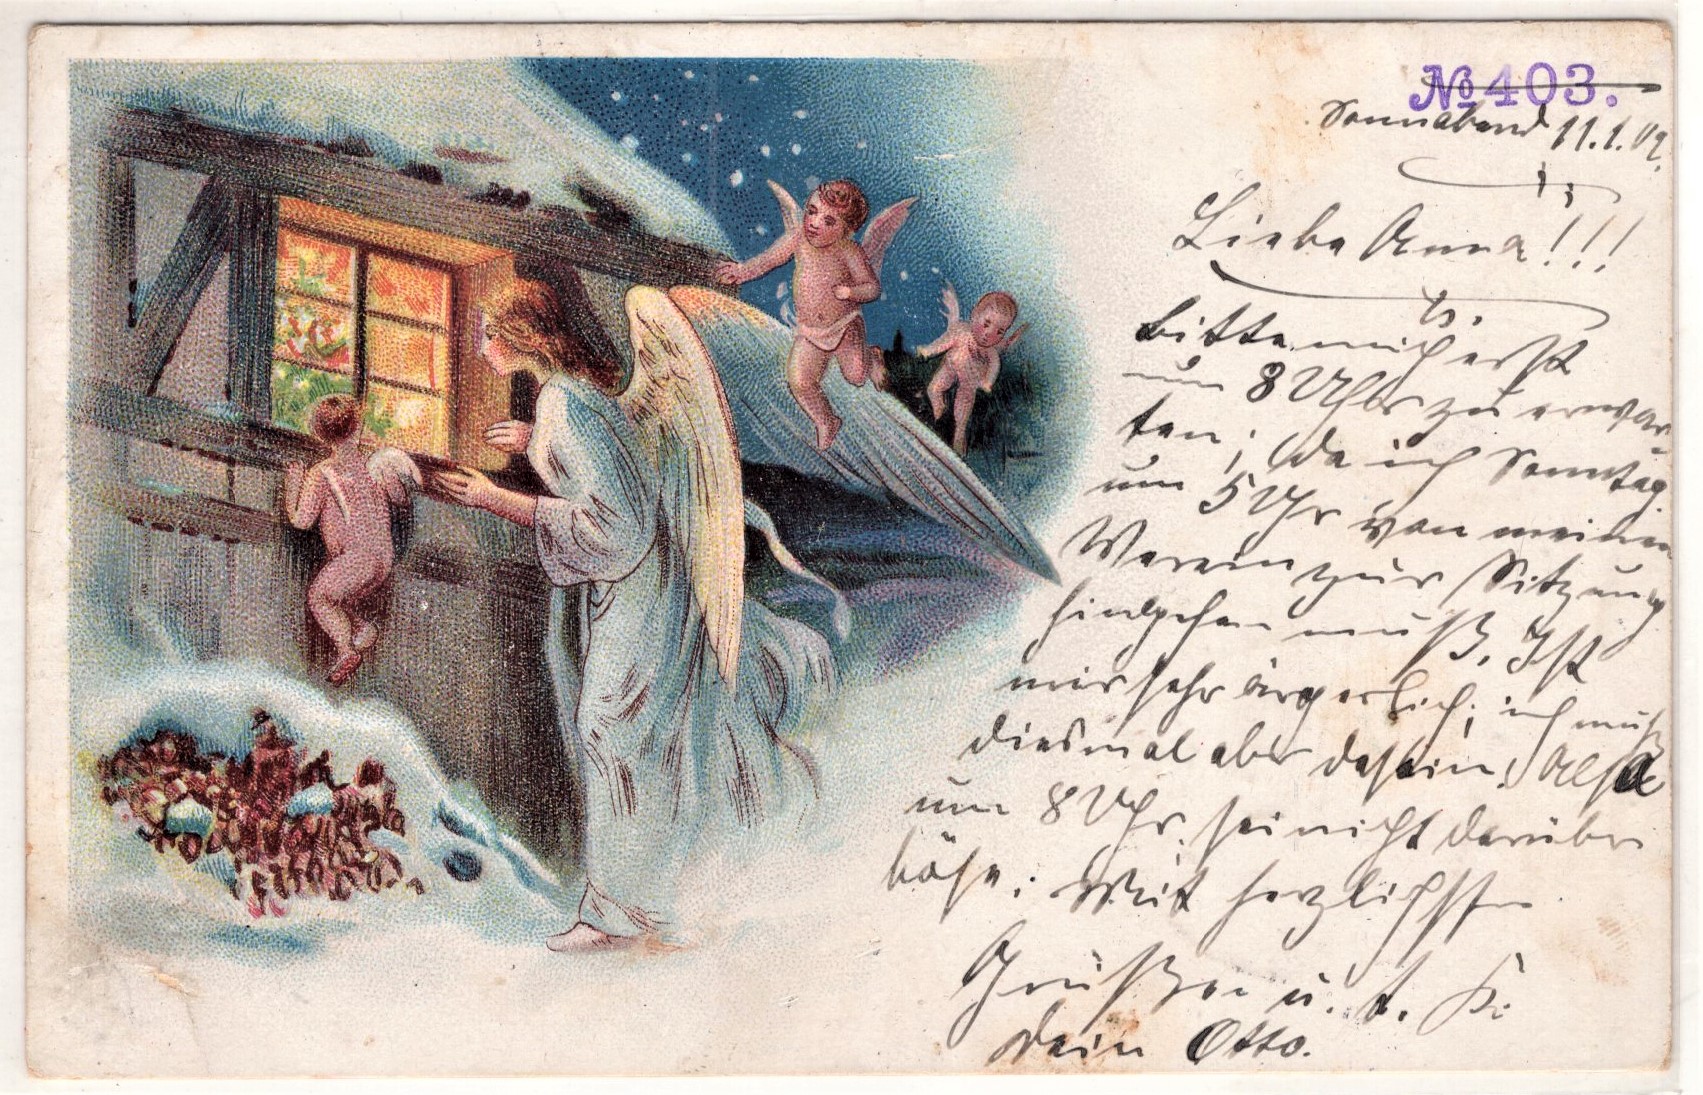 No 403.
Sonnabend 11.1.02.
Liebe Anna!!!
bitte mich erst
um 8 Uhr zu erwar
ten; da ich Sonntag
um 5 Uhr von meinen
Verein zur Sitzung
hingehen muß. Ist
mir sehr ärgerlich; ich muß
diesmal aber dasein. Also
um 8 Uhr. sei nicht darüber
böse. Mit herzlichsten
Grüßen u. t. K.
Dein Otto.